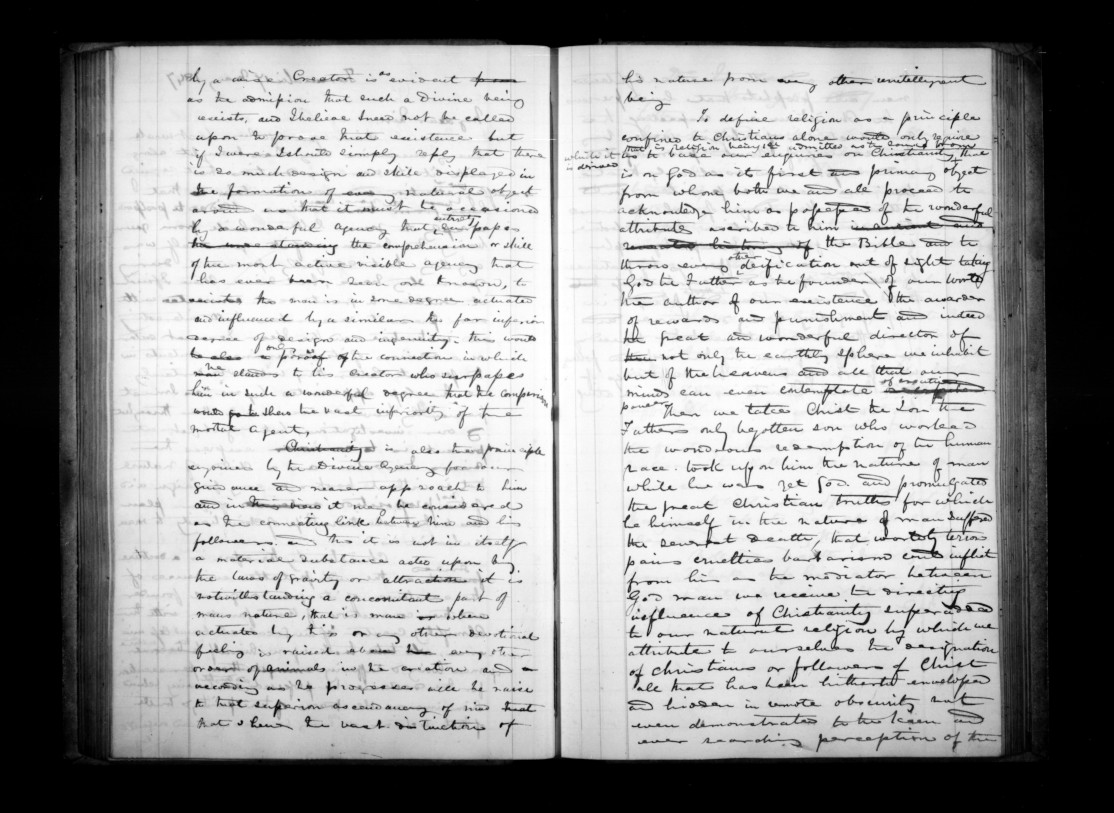 by a wise Creator is as evident
as the admission that such a Divine being
exists, and I believe I need not be called
upon to prove that existence but
if I were I should simply reply that there
is so much design and skill displayed in
the formations of every natural object
around us that it must be occasioned
by a wonderful agency that entirely surpasses
the comprehension or skill
of the most active visible agency that
has ever been seen or known, to
the man is in some degree actuated
and influenced by a similar tho far inferior
degree of design and ingenuity. this would
be also a proof of the connection in which
man stands to his Creator who surpasses
him in such a wonderful degree that the comparison
would go to shew the vast inferiority of the
mortal agent.
Christianity is also the principle
enjoined by the Divine Agency for our
guidance and nearer approach to him
and in this view it may be considered
as the connecting link between him and his
followers. and tho it is not in itself
a material substance acted upon by
the laws of gravity or attraction it is
notwithstanding a concomitant part of
mans nature, that is man when
actuated by this or any other devotional
feeling is raised above the any other
order of animals in the creation and
according as he progresses will he raise
to that superior ascendancy of mind that
that shews the vast distinction of
his nature from any other unintelligent
being
To define religion as a principle
confined to Christians alone would only require
that is religion being admitted as the
which it is derived
us to base our enquiries on Christianity that
is on God as it first and primary object
from whom both we and all proceed to
acknowledge him as possessed of the wonderful
attributes ascribed to him
of the Bible and to
throw every other deification out of sight taking
God the Father as the founder of our world
the author of our existence the awarder
of rewards and punishment and indeed
the great and wonderful director of
not only the earthly sphere we inhabit
but of the heavens and all that our
minds can even contemplate
power
Then we take Christ the Son the
Fathers only begotten son who worked
the wondrous redemption of the human
race. took upon him the nature of man
while he was yet God. and promulgated
the great Christian truths for which
he himself in the nature of man suffered
the severest death, that worldly
pains cruelties barbarism could inflict
from him as the mediator between
God man we receive the directing
influence of Christianity superadded
to our natural religion by which we
attribute to ourselves the designation
of christians or followers of Christ
all that has been hitherto enveloped
and hidden in remote obscurity not
even demonstrated to the keen and
ever searching perception of the